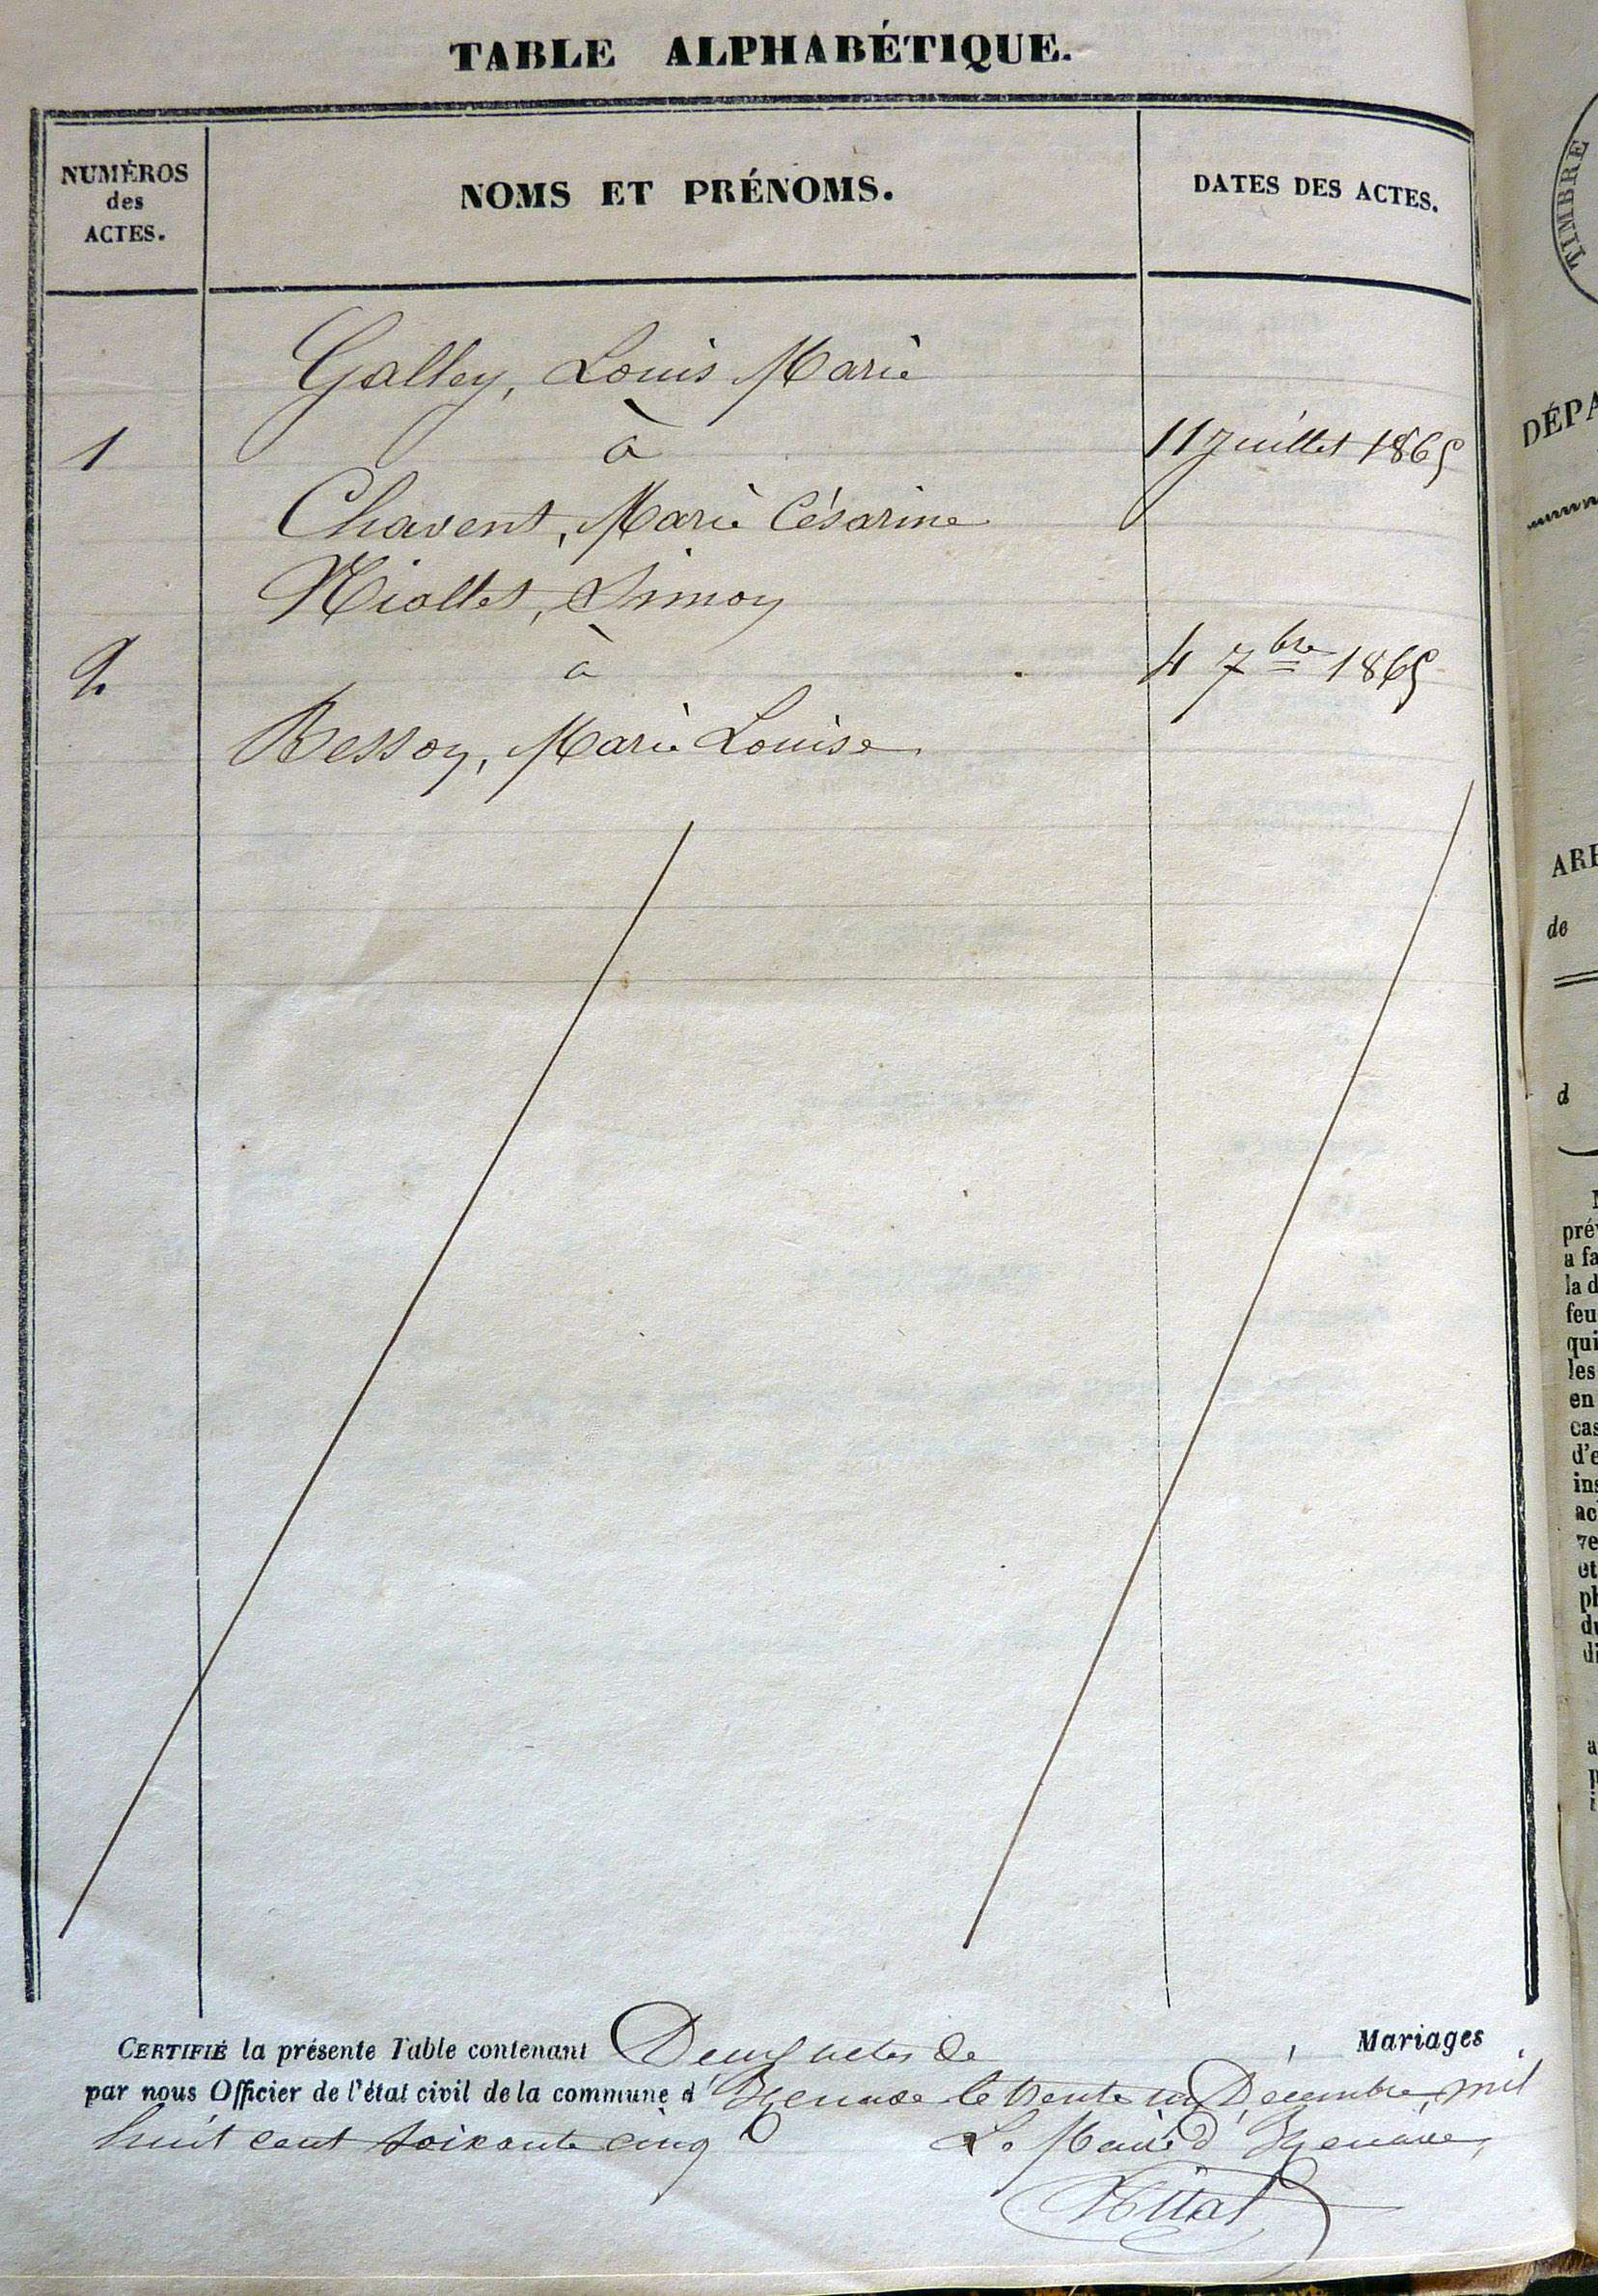 TABLE ALPHABÉTIQUE.
NUMÉROS
des
ACTES.
NOMS ET PRÉNOMS.
DATES DES ACTES.
Galley, Louis Marie
1
à
11 Juillet 1865
Chavent, Marie Césarine
Niollet, Simon
2.
à
4 7bre 1865
Besson, Marie Louise
CERTIFIÉ la présente Table contenant Deux actes de Mariages
par nous Officier de l'état civil de la commune d' le trente un Décembre mil
huit cent soixante cinq
Le Maire d'
TIMBRE
DÉPA
ARR
de
d
pré
a fa
la d
feu
qui
les
en
cas
d'e
ins
ac
et
ph
du
di
a
p